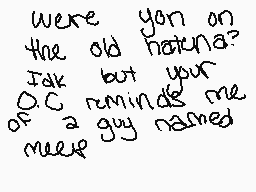 were yon on
the old hatena?
Idk but your
O.C reminds me
of a guy named
meep